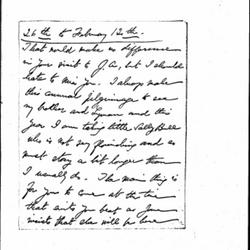 26th to February 12th.
That would make no difference
in your visit to J.A., but I should
hate to miss you. I always make
this annual pilgrimage to see
my brother and Lyman and this
year I am taking little Sally Bell
who is not very flourishing and so
must stay a bit longer than
I usually do. The main thing is
for you to come at the time
that suits you best as Jane
insists that she will be here